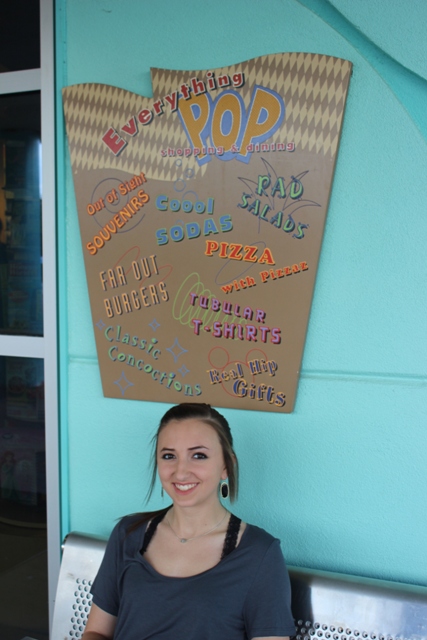 Everything
POP
shopping & dining
Out of Sight
SOUVENIRS
Coool
SODAS
RAD
SALADS
PIZZA
with Pizzaz
FAR OUT
BURGERS
TUBULAR
T-SHIRTS
Classic
Concoctions
Real Hip
Gifts